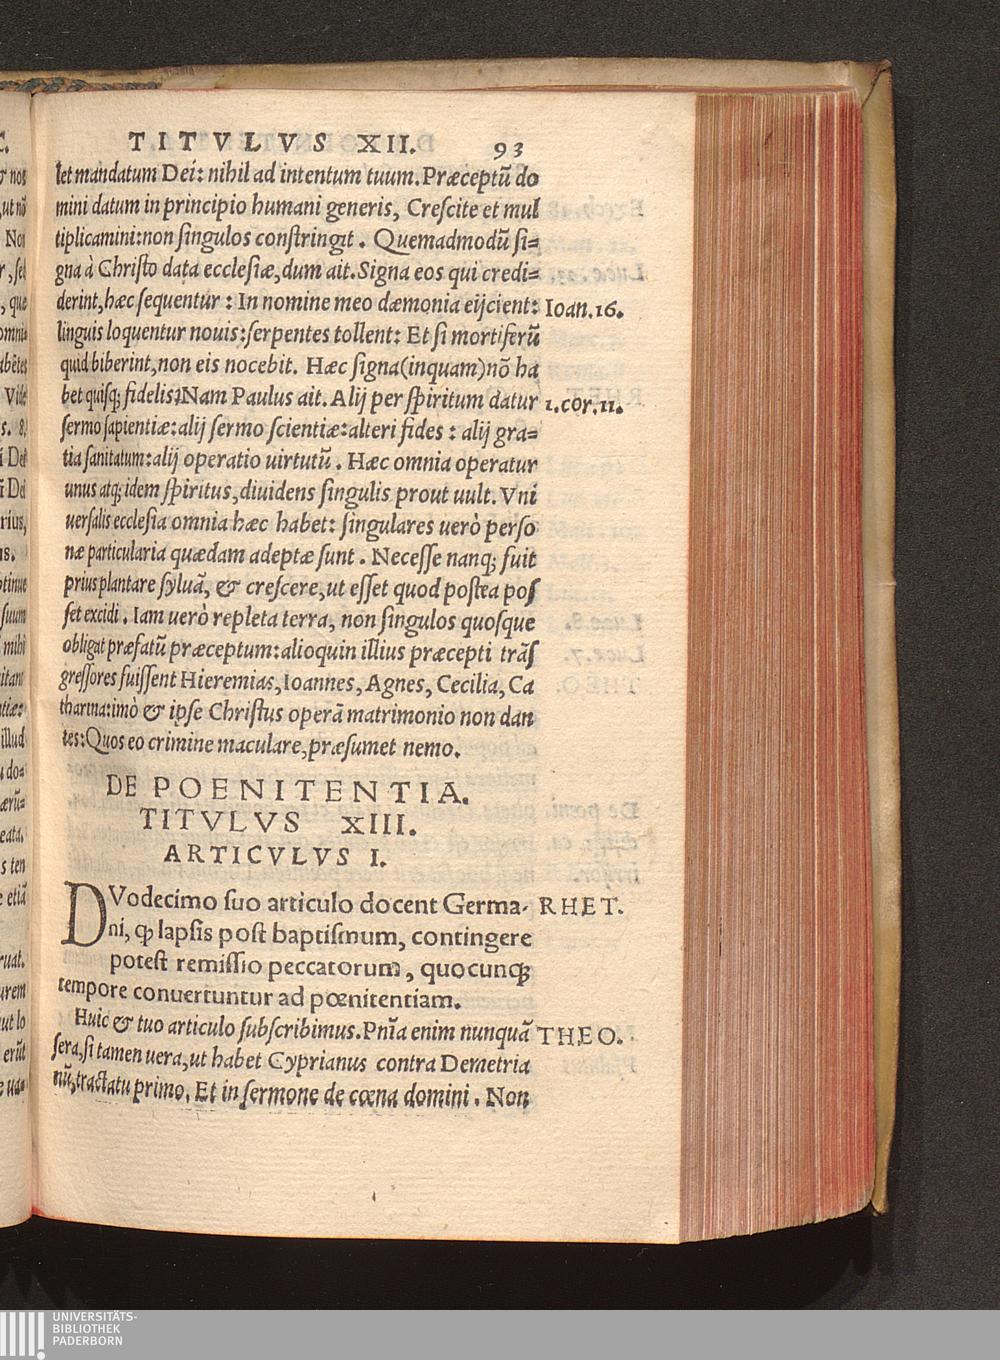 TITVLVS XII. 93
let mandatum Dei: nihil ad intentum tuum. Præceptũ do
mini datum in principio humani generis, Creſcite et mul
tiplicamini: non ſingulos conſtringit. Quemadmodũ ſi=
gna à Chriſto data eccleſiæ, dum ait. Signa eos qui credi=
derint, hæc ſequentur: In nomine meo dæmonia eijcient:
Ioan. 16.
linguis loquentur nouis: ſerpentes tollent: Et ſi mortiferũ
quid biberint, non eis nocebit. Hæc ſigna (inquam) nõ ha
bet quiſq; fidelis: Nam Paulus ait. Alij per ſpiritum datur
1. cor. 11.
ſermo ſapientiæ: alij ſermo ſcientiæ: alteri fides: alij gra=
tia ſanitatum: alij operatio uirtutũ. Hæc omnia operatur
unus atq; idem ſpiritus, diuidens ſingulis prout uult. Vni
uerſalis eccleſia omnia hæc habet: ſingulares uerò perſo
næ particularia quædam adeptæ ſunt. Neceſſe nanq; fuit
prius plantare ſyluã, & creſcere, ut eſſet quod poſtea poſ
ſet excidi. Iam uerò repleta terra, non ſingulos quoſque
obligat præfatũ præceptum: alioquin illius præcepti trãſ
greſſores fuiſſent Hieremias, Ioannes, Agnes, Cecilia, Ca
tharina: imò & ipſe Chriſtus operã matrimonio non dan
tes: Quos eo crimine maculare, præſumet nemo.
DE POENITENTIA.
TITVLVS XIII.
ARTICVLVS I.
DVodecimo ſuo articulo docent Germa-
RHET.
ni, ꝙ lapſis poſt baptiſmum, contingere
poteſt remiſſio peccatorum, quocunq;
tempore conuertuntur ad pœnitentiam.
Huic & tuo articulo ſubſcribimus. Pnĩa enim nunquã
THEO.
ſera, ſi tamen uera, ut habet Cyprianus contra Demetria
nũ, tractatu primo. Et in ſermone de cœna domini. Non
UNIVERSITÄTS-
BIBLIOTHEK
PADERBORN